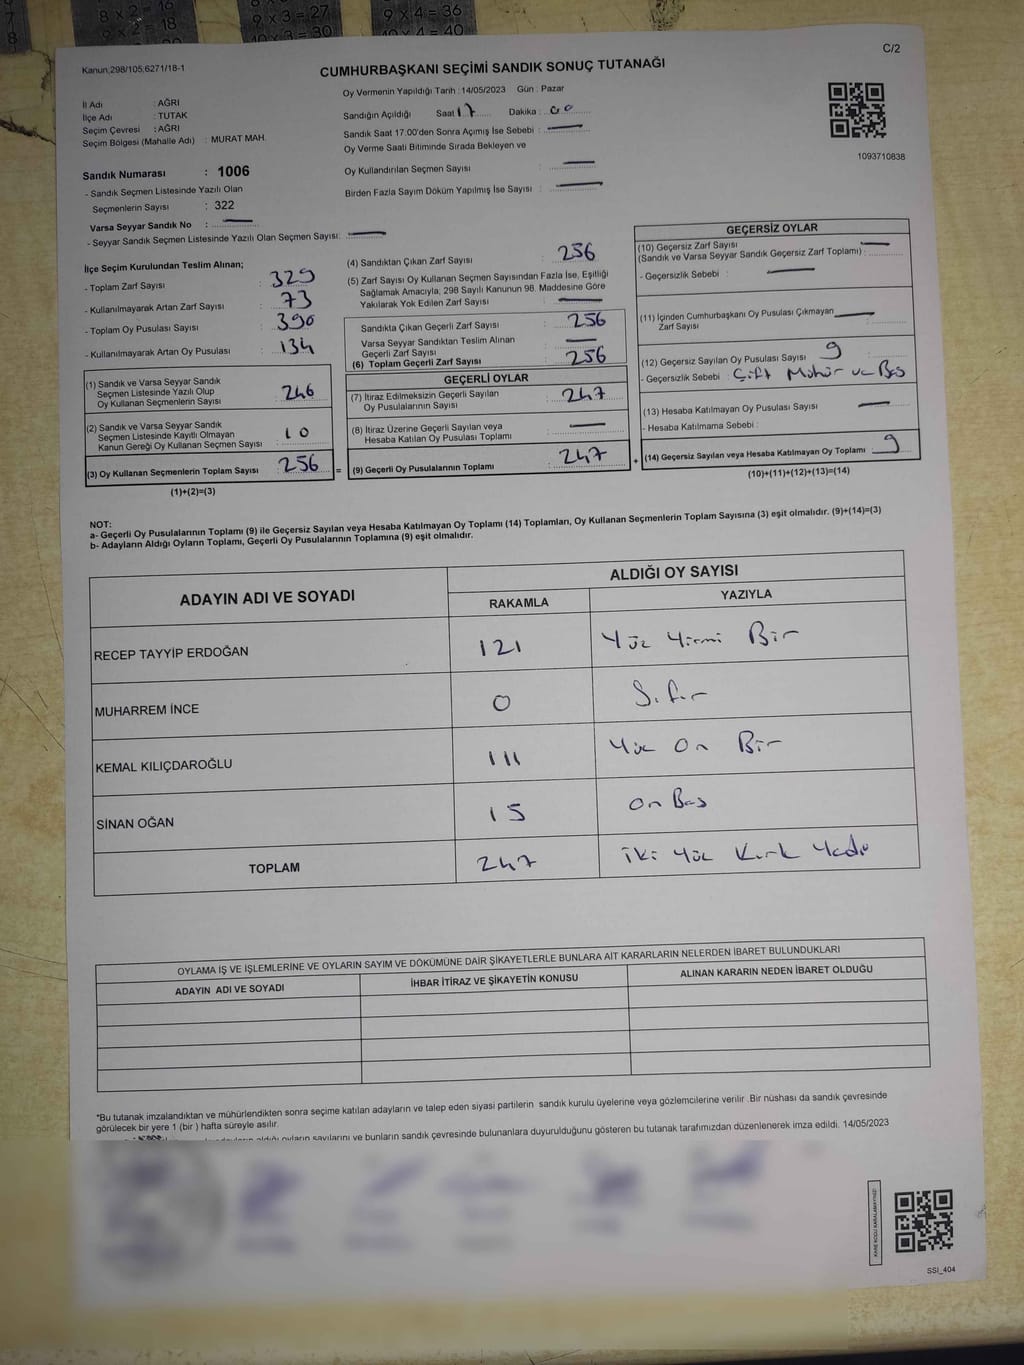 8 x 2 = 16
9 x 2 = 18
9 x 3 = 27
10 x 3 = 30
9 x 4 = 36
10 x 4 = 40
7
8
Kanun,298/105;6271/18-1
C/2
CUMHURBAŞKANI SEÇİMİ SANDIK SONUÇ TUTANAĞI
İl Adı : AĞRI
İlçe Adı : TUTAK
Seçim Çevresi : AĞRI
Seçim Bölgesi (Mahalle Adı) : MURAT MAH.
Oy Vermenin Yapıldığı Tarih : 14/05/2023 Gün : Pazar
Sandığın Açıldığı Saat 17 Dakika : 00
Sandık Saat 17:00'den Sonra Açımış İse Sebebi :
Oy Verme Saati Bitiminde Sırada Bekleyen ve
Oy Kullandırılan Seçmen Sayısı :
Birden Fazla Sayım Döküm Yapılmış İse Sayısı :
1093710838
Sandık Numarası : 1006
- Sandık Seçmen Listesinde Yazılı Olan
Seçmenlerin Sayısı : 322
Varsa Seyyar Sandık No :
- Seyyar Sandık Seçmen Listesinde Yazılı Olan Seçmen Sayısı:
İlçe Seçim Kurulundan Teslim Alınan;
- Toplam Zarf Sayısı : 329
- Kullanılmayarak Artan Zarf Sayısı : 73
- Toplam Oy Pusulası Sayısı : 390
- Kullanılmayarak Artan Oy Pusulası : 134
(1) Sandık ve Varsa Seyyar Sandık
Seçmen Listesinde Yazılı Olup
Oy Kullanan Seçmenlerin Sayısı : 246
(2) Sandık ve Varsa Seyyar Sandık
Seçmen Listesinde Kayıtlı Olmayan
Kanun Gereği Oy Kullanan Seçmen Sayısı : 10
(3) Oy Kullanan Seçmenlerin Toplam Sayısı : 256 =
(1)+(2)=(3)
(4) Sandıktan Çıkan Zarf Sayısı : 256
(5) Zarf Sayısı Oy Kullanan Seçmen Sayısından Fazla İse, Eşitliği
Sağlamak Amacıyla, 298 Sayılı Kanunun 98. Maddesine Göre
Yakılarak Yok Edilen Zarf Sayısı :
Sandıkta Çıkan Geçerli Zarf Sayısı : 256
Varsa Seyyar Sandıktan Teslim Alınan
Geçerli Zarf Sayısı :
(6) Toplam Geçerli Zarf Sayısı : 256
GEÇERLİ OYLAR
(7) İtiraz Edilmeksizin Geçerli Sayılan
Oy Pusulalarının Sayısı : 247
(8) İtiraz Üzerine Geçerli Sayılan veya
Hesaba Katılan Oy Pusulası Toplamı :
(9) Geçerli Oy Pusulalarının Toplamı : 247 +
GEÇERSİZ OYLAR
(10) Geçersiz Zarf Sayısı
(Sandık ve Varsa Seyyar Sandık Geçersiz Zarf Toplamı) :
- Geçersizlik Sebebi :
(11) İçinden Cumhurbaşkanı Oy Pusulası Çıkmayan
Zarf Sayısı :
(12) Geçersiz Sayılan Oy Pusulası Sayısı : 9
- Geçersizlik Sebebi : Çift Mühür ve Boş
(13) Hesaba Katılmayan Oy Pusulası Sayısı :
- Hesaba Katılmama Sebebi :
(14) Geçersiz Sayılan veya Hesaba Katılmayan Oy Toplamı 9
(10)+(11)+(12)+(13)=(14)
NOT:
a- Geçerli Oy Pusulalarının Toplamı (9) ile Geçersiz Sayılan veya Hesaba Katılmayan Oy Toplamı (14) Toplamları, Oy Kullanan Seçmenlerin Toplam Sayısına (3) eşit olmalıdır. (9)+(14)=(3)
b- Adayların Aldığı Oyların Toplamı, Geçerli Oy Pusulalarının Toplamına (9) eşit olmalıdır.
ADAYIN ADI VE SOYADI
ALDIĞI OY SAYISI
RAKAMLA YAZIYLA
RECEP TAYYİP ERDOĞAN 121 Yüz Yirmi Bir
MUHARREM İNCE 0 Sıfır
KEMAL KILIÇDAROĞLU 111 Yüz On Bir
SİNAN OĞAN 15 On Beş
TOPLAM 247 İki Yüz Kırk Yedi
OYLAMA İŞ VE İŞLEMLERİNE VE OYLARIN SAYIM VE DÖKÜMÜNE DAİR ŞİKAYETLERLE BUNLARA AİT KARARLARIN NELERDEN İBARET BULUNDUKLARI
ADAYIN ADI VE SOYADI İHBAR İTİRAZ VE ŞİKAYETİN KONUSU ALINAN KARARIN NEDEN İBARET OLDUĞU
*Bu tutanak imzalandıktan ve mühürlendikten sonra seçime katılan adayların ve talep eden siyasi partilerin sandık kurulu üyelerine veya gözlemcilerine verilir .Bir nüshası da sandık çevresinde
görülecek bir yere 1 (bir ) hafta süreyle asılır.
aldığı oyların sayılarını ve bunların sandık çevresinde bulunanlara duyurulduğunu gösteren bu tutanak tarafımızdan düzenlenerek imza edildi. 14/05/2023
KARE KODU KARALAMAYINIZ!
SSI_404